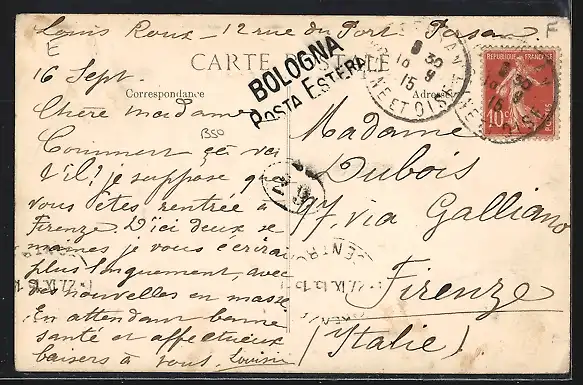 Louis Roux - 12 rue du Port Persan.
E
F
CARTE POSTALE
BOLOGNA
POSTA ESTERA
Correspondance
Adresse
8 30
16 9
15
ET OISE
REPUBLIQUE FRANÇAISE
10c
POSTES
16 Sept.
Chère madame
BSO
Comment ça va
t'il! je suppose que
vous êtes rentrée à
Firenze. D'ici deux se
maines je vous écrirai
plus longuement, avec
des nouvelles en masse
En attendant bonne
santé et affectueux
baisers à vous, Louisin
Madame
Dubois
97, via Galliano
CENTRO
Firenze
(Italie)